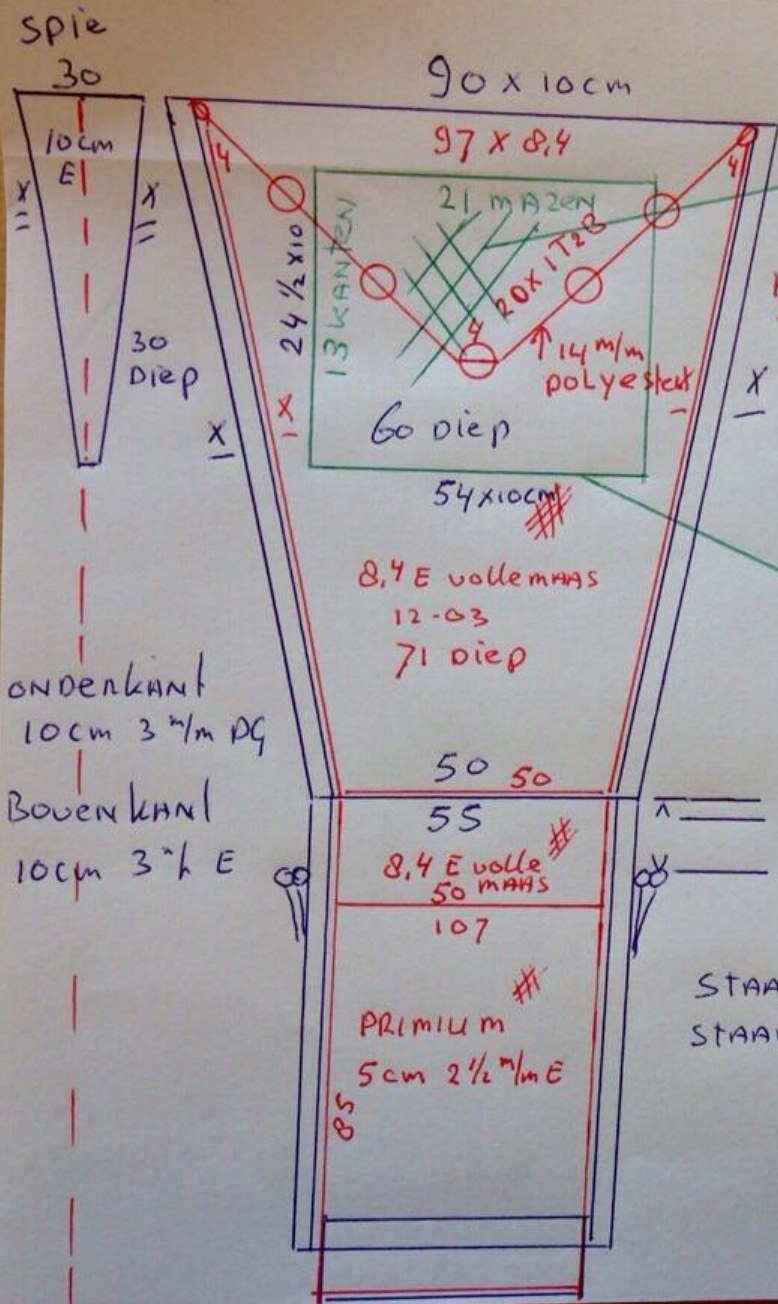 Spie
30
10cm
E
X
X
30
Diep
90 x 10cm
97 x 8,4
4
4
21 mAZEN
13 KANTEN
24 1/2 x10
20x 1T2B
14 m/m
polyester
60 Diep
X
X
X
54x10cm
8,4 E volle mAAS
12-03
71 Diep
ONDERKANT
10cm 3 m/m DG
BOVENKANT
10cm 3 m/m E
50 50
55
8,4 E volle
mAAS
50
107
PRIMIUM
5cm 2 1/2 m/m E
85
STAA
STAA